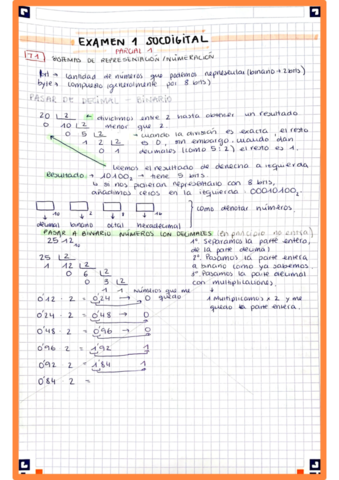 EXAMEN 1 SOCDIGITAL
PARCIAL 1
1.1 FORMAS DE REPRESENTACIÓN/NUMERACIÓN
bit → cantidad de números que podemos representar (binario → 2 bits)
byte → compuesto (generalmente por 8 bits)
PASAR DE DECIMAL - BINARIO
20 2 ← dividimos entre 2 hasta obtener un resultado
0 10 2 menor que 2.
0 5 2 → cuando la división es exacta, el resto
1 2 2 es 0, sin embargo, cuando dan
0 1 decimales (como 5:2) el resto es 1.
Leemos el resultado de derecha a izquierda
Resultado → 10100₂ → tiene 5 bits.
si nos pidieran representarlo con 8 bits,
añadimos ceros en la izquierda: 00010100₂
10 2 8 16 como denotar números
decimal binario octal hexadecimal
PASAR A BINARIO NÚMEROS CON DECIMALES (en principio no entra)
25'12₁₀ 1º. Separamos la parte entera,
de la parte decimal
25 2 2º. Pasamos la parte entera
1 12 2 a binario como ya sabemos
0 6 2 3º Pasamos la parte decimal
0 3 2 con multiplicaciones.
1 1 números que me
0'12 · 2 = 0'24 → 0 quedo 1 Multiplicamos x 2 y me
0'24 · 2 = 0'48 → 0 quedo la parte entera.
0'48 · 2 = 0'96 → 0
0'96 · 2 = 1'92 1
0'92 · 2 = 1'84 1
0'84 2 =